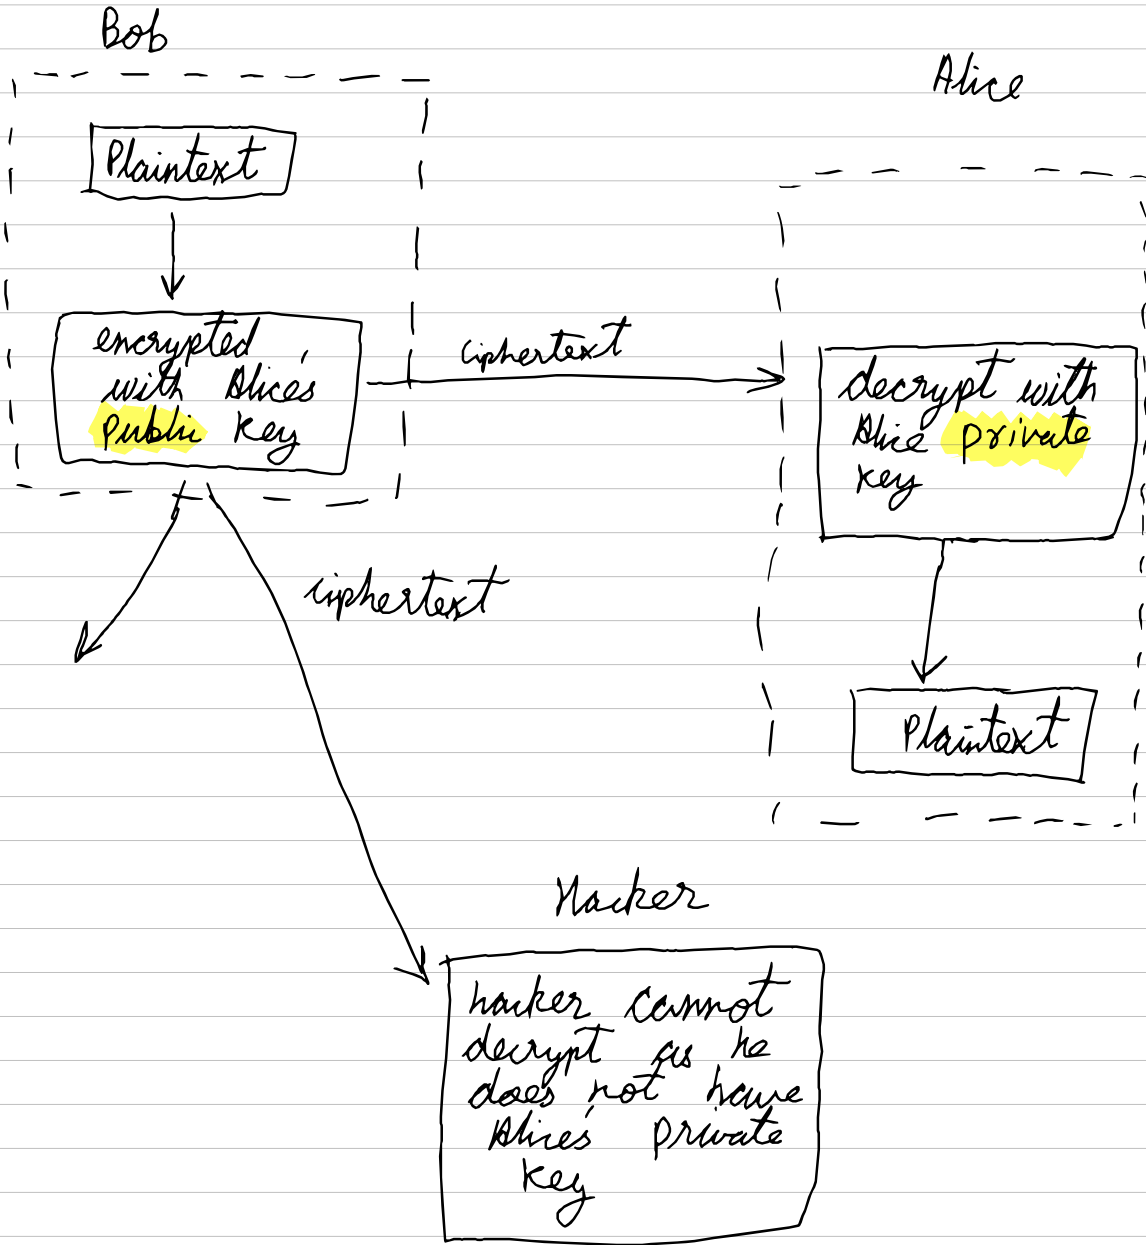 Bob
Plaintext
encrypted
with Alice's
public key
ciphertext
ciphertext
Alice
decrypt with
Alice private
key
Plaintext
Hacker
hacker cannot
decrypt as he
does not have
Alice's private
key